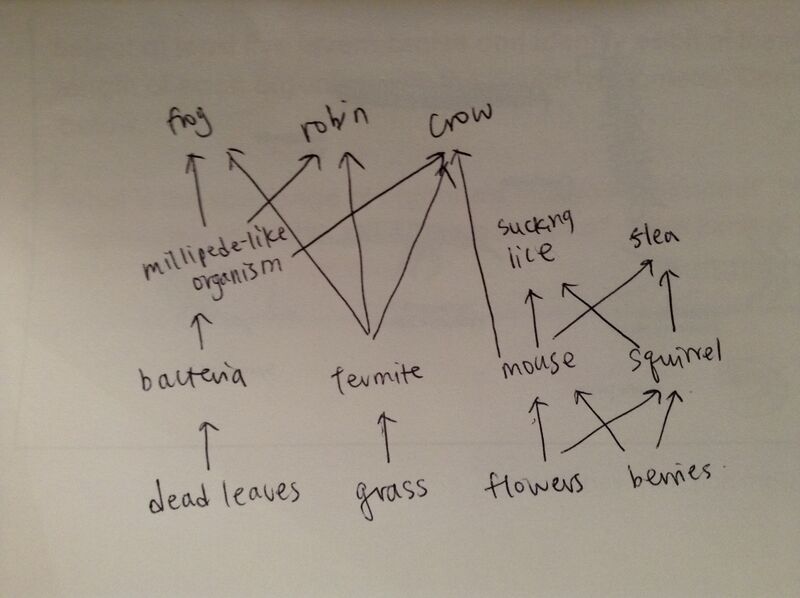 frog
robin
crow
millipede-like
organism
sucking
lice
flea
bacteria
termite
mouse
squirrel
dead leaves
grass
flowers
berries